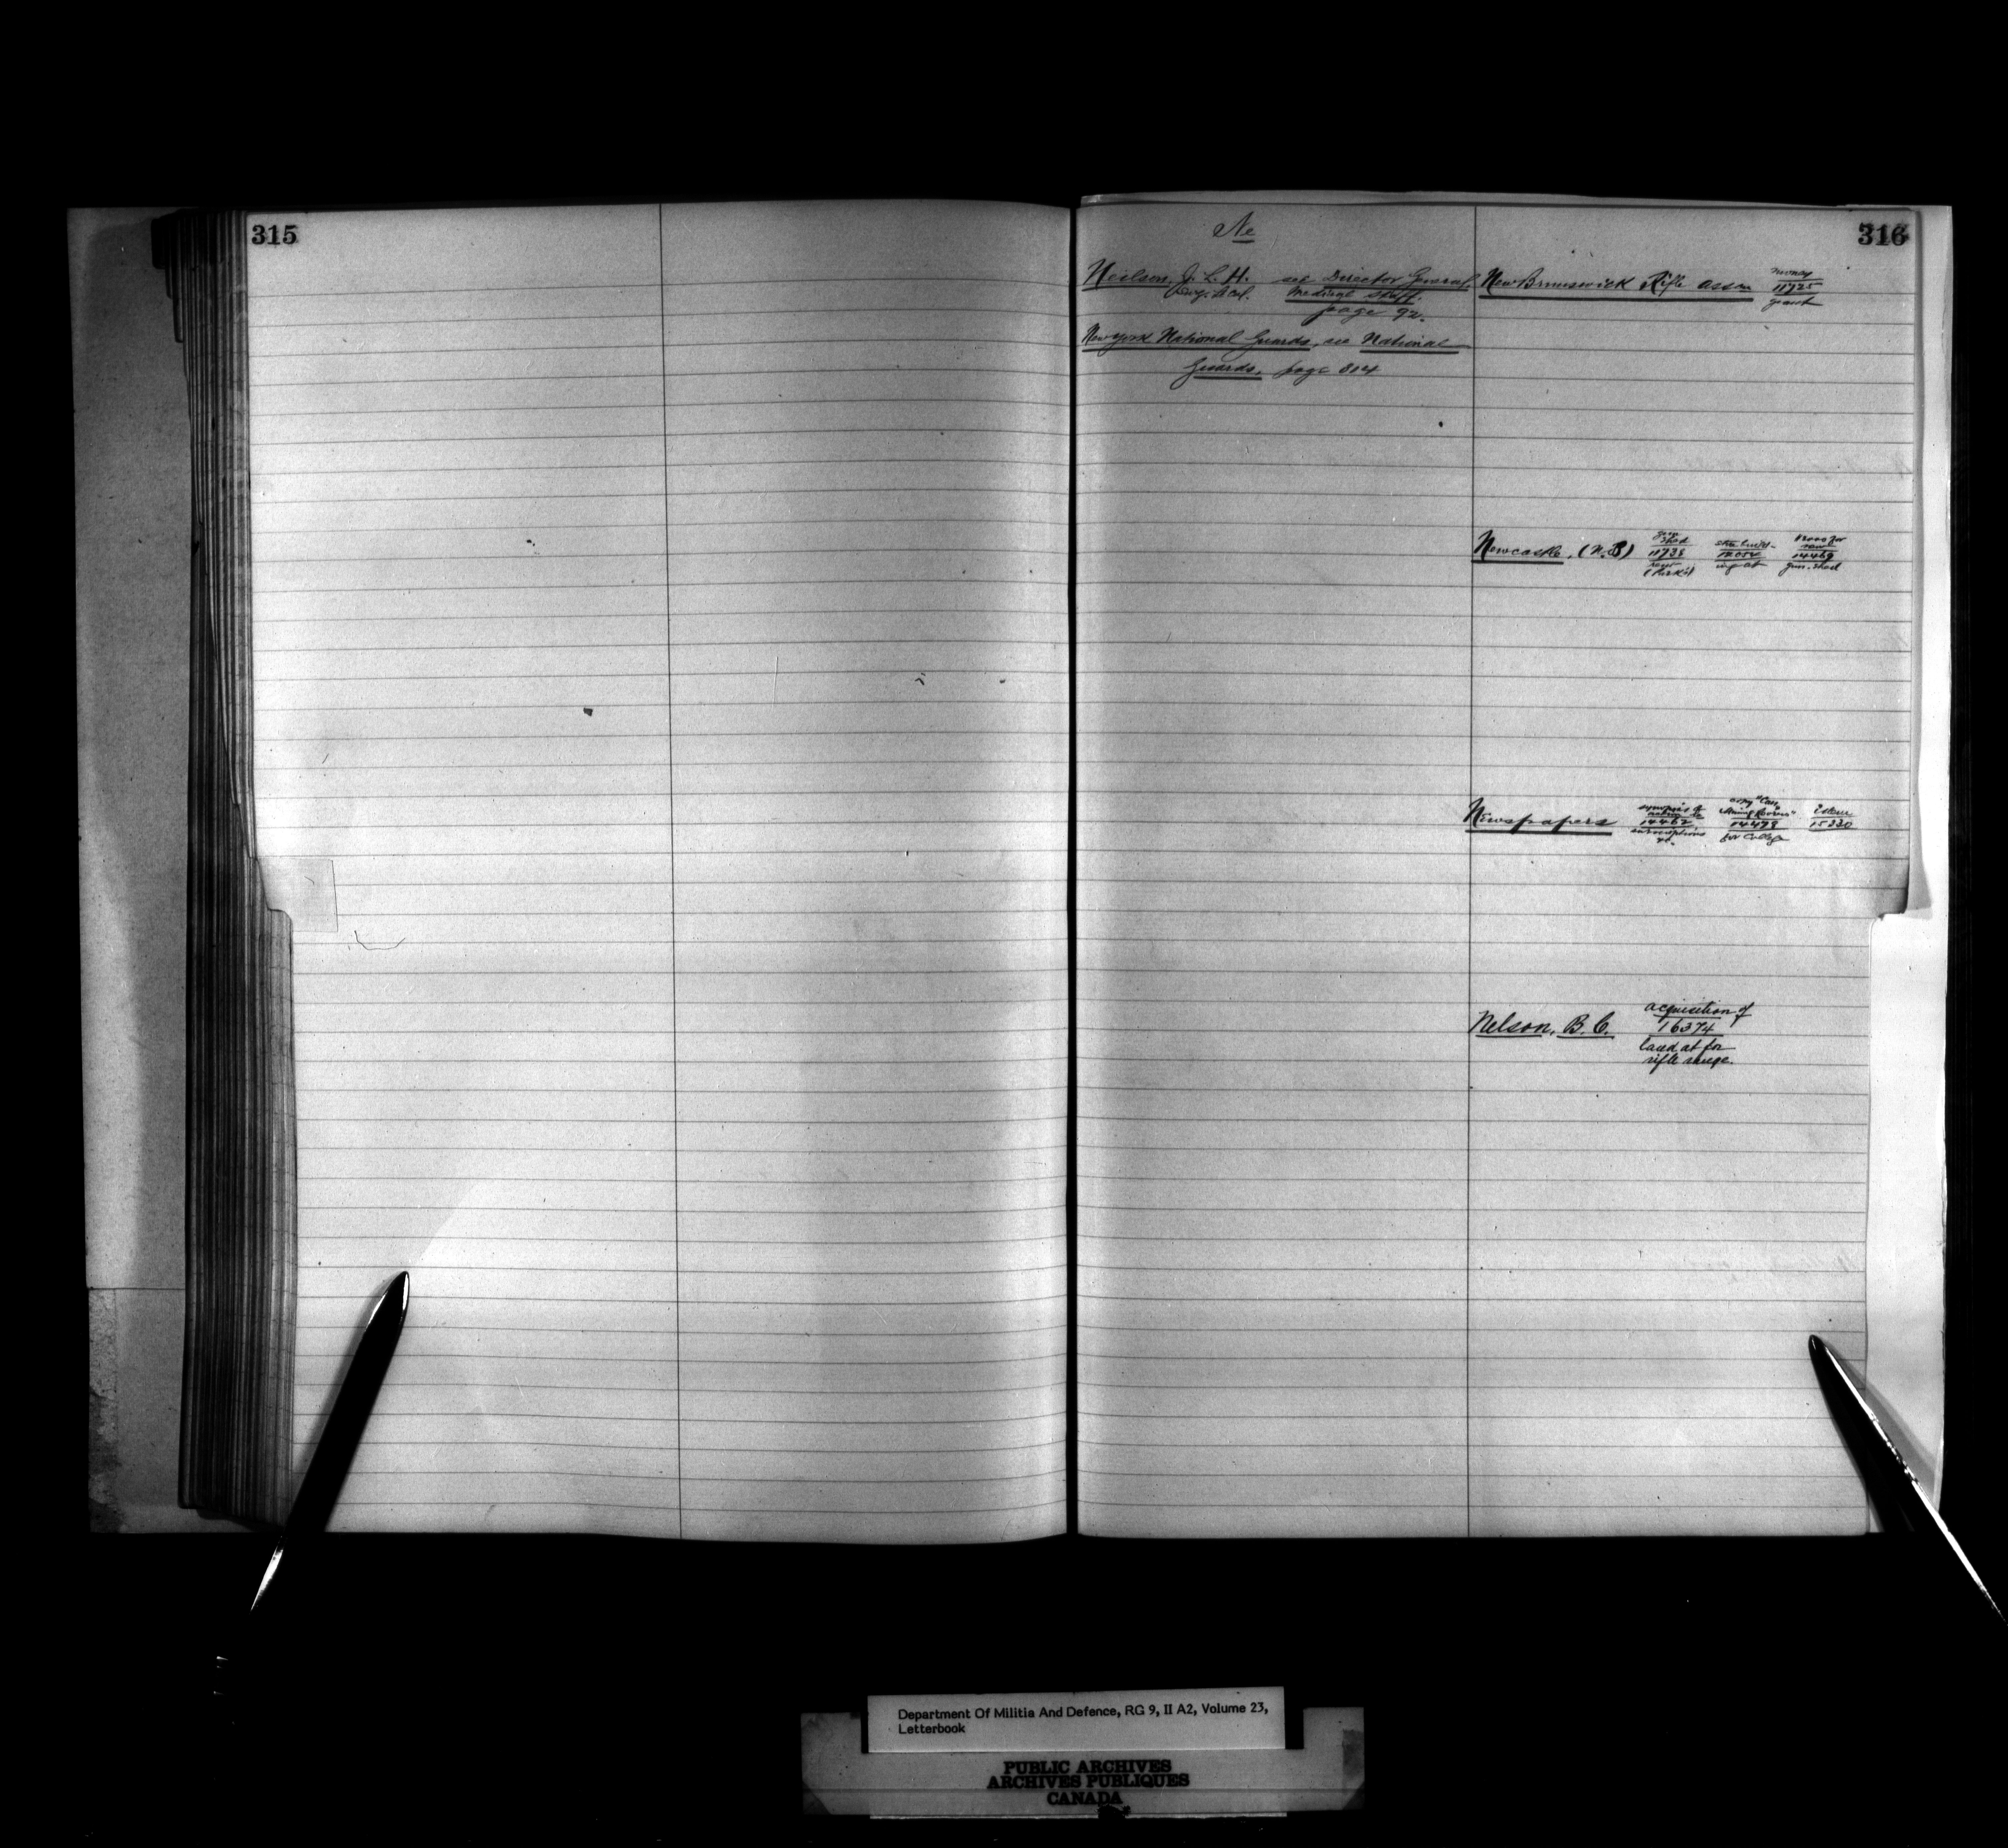 315
316
Ne
Neilson, J. L. H. see Director General,
Medical Staff.
page 92.
New York National Guards, see National
Guards, page 304
New Brunswick Rifle Assn
money
11725
grant
Newcastle, (N.B)
gun
shed
11738
rent
12052
14469
gun-shed
Newspapers
synopsis of
14462
copy "Can.
Mining Review"
14478
for College
15220
Nelson, B.C.
acquisition of
16374
land at for
rifle range.
Department Of Militia And Defence, RG 9, II A2, Volume 23,
Letterbook
PUBLIC ARCHIVES
ARCHIVES PUBLIQUES
CANADA